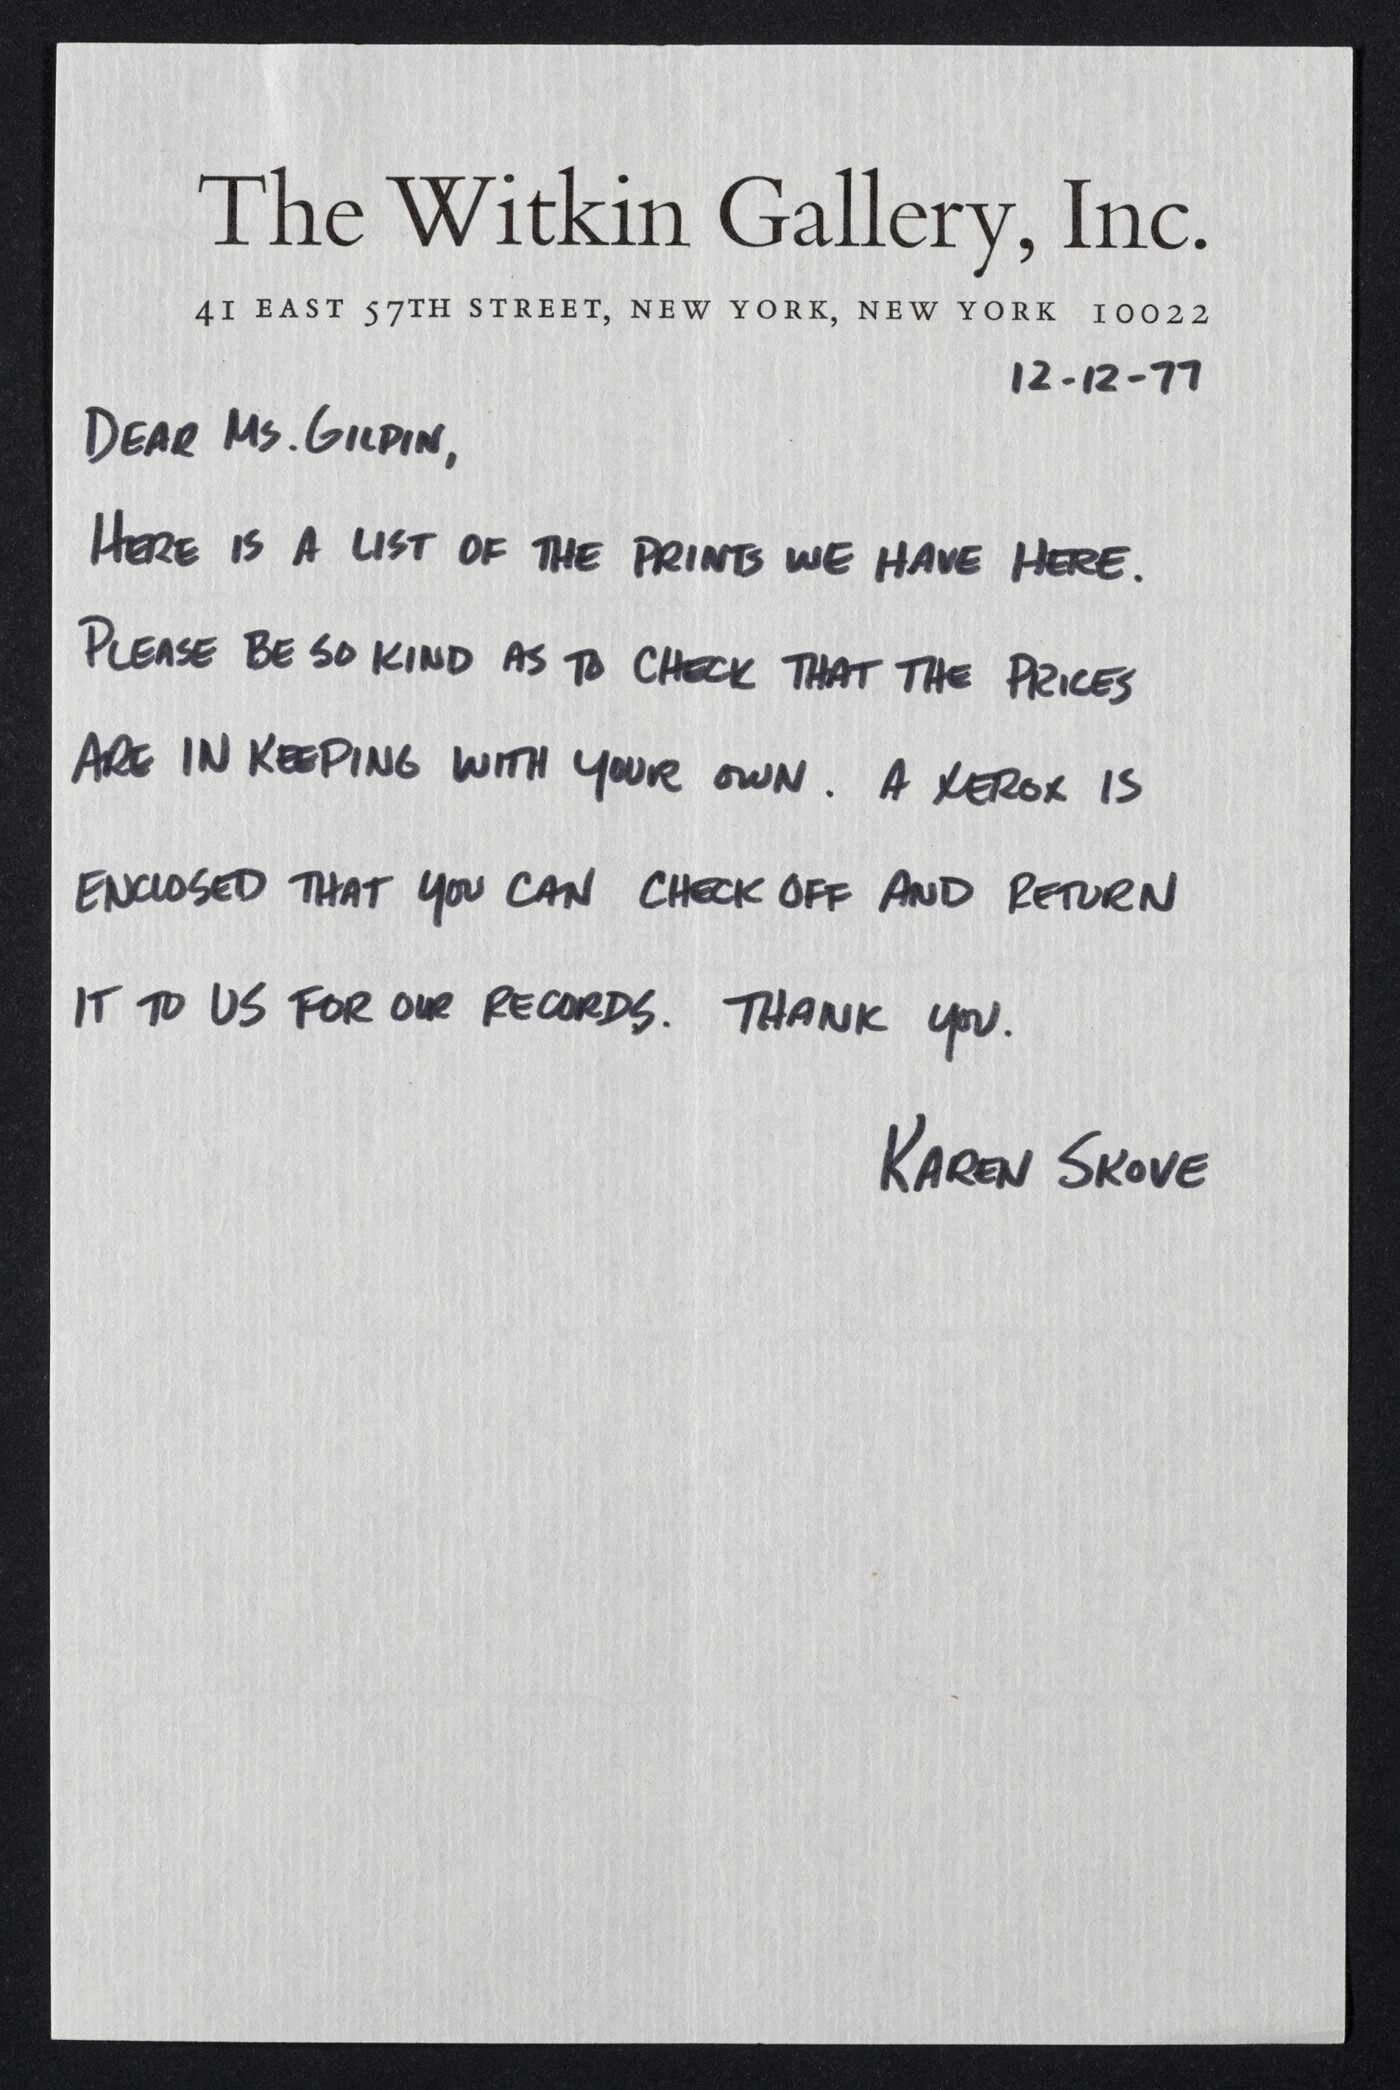 The Witkin Gallery, Inc.
41 EAST 57TH STREET, NEW YORK, NEW YORK 10022
12-12-77
DEAR MS. GILPIN,
HERE IS A LIST OF THE PRINTS WE HAVE HERE.
PLEASE BE SO KIND AS TO CHECK THAT THE PRICES
ARE IN KEEPING WITH YOUR OWN. A XEROX IS
ENCLOSED THAT YOU CAN CHECK OFF AND RETURN
IT TO US FOR OUR RECORDS. THANK YOU.
KAREN SKOVE